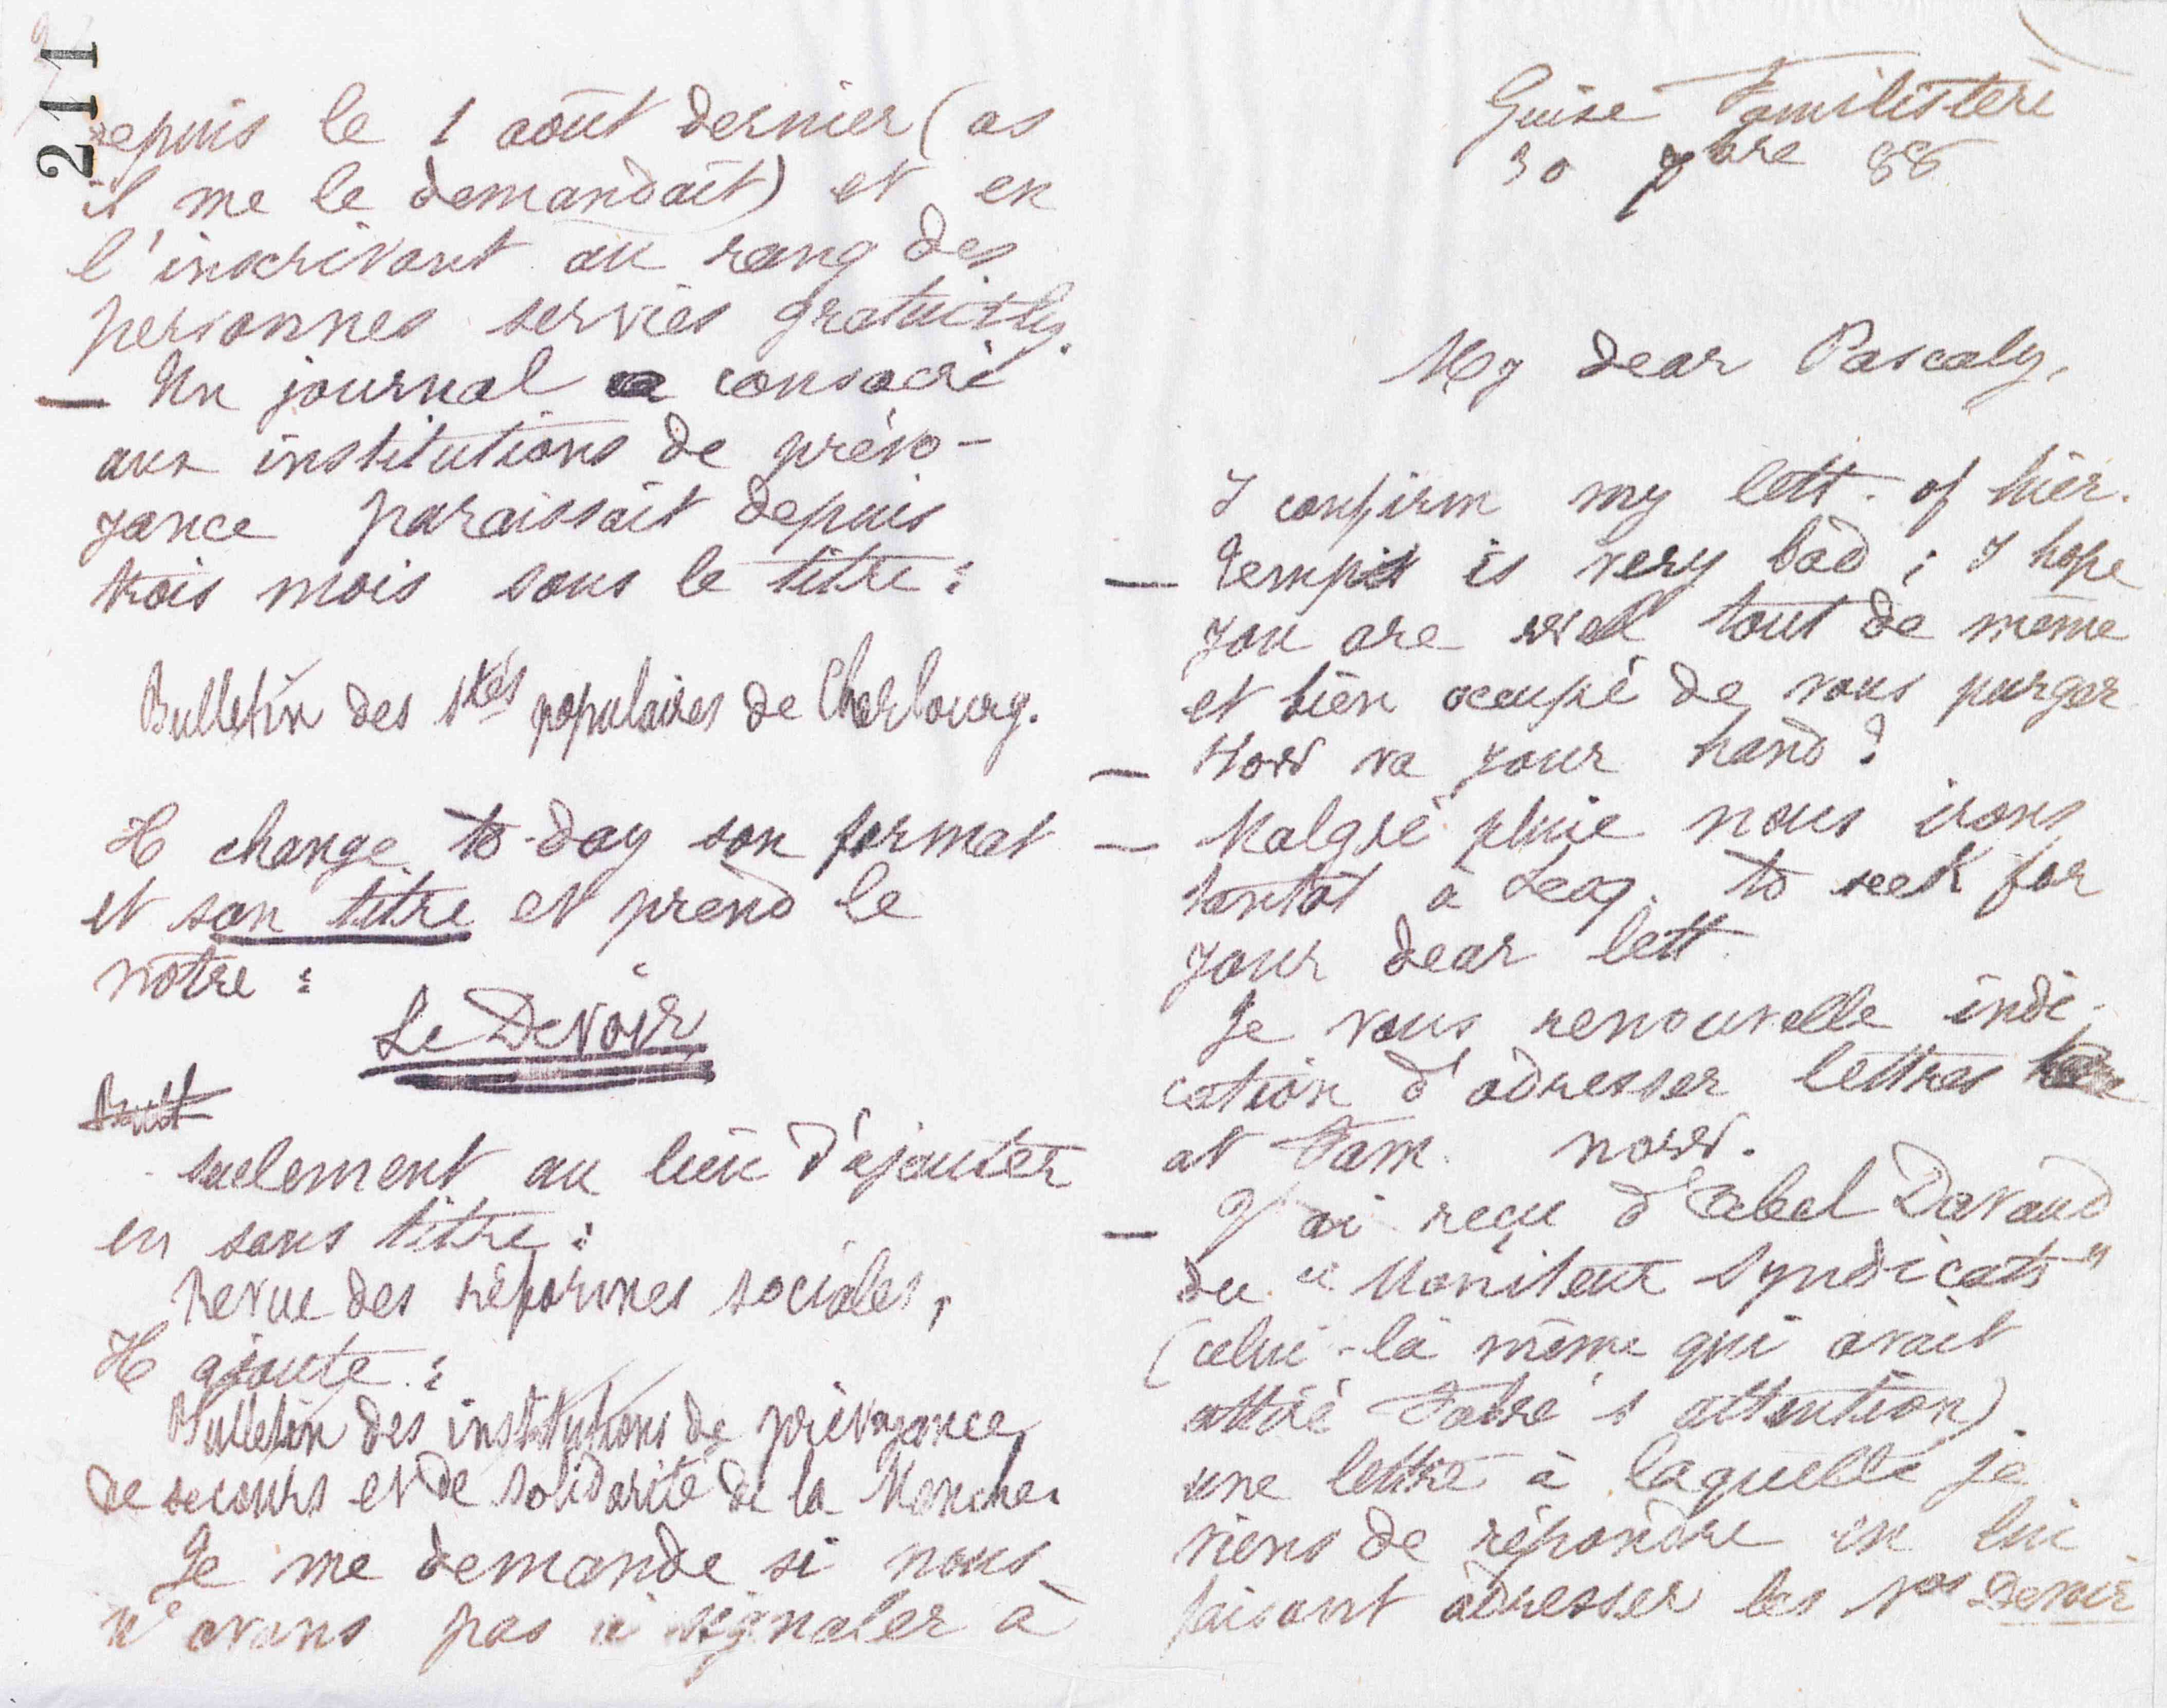 Guise Familistère
30 7bre 88
My dear Pascaly,
I confirm my lett. of hier.
— Temps is very bad ; I hope
you are well tout de même
et bien occupé de vous purger.
— How va your hand ?
— Malgré pluie nous irons
tantôt à Lesq. to seek for
your dear lett.
Je vous renouvelle indi-
cation d'adresser lettres
at Fam. now.
— J'ai reçu d'Abel Davaud
du "Moniteur Syndicats"
(celui-là même qui avait
attiré Fabre's attention)
une lettre à laquelle je
viens de répondre en lui
faisant adresser les nos Devoir
211
depuis le 1 août dernier (as
il me le demandait) et en
l'inscrivant au rang des
personnes servies gratuitly.
— Un journal consacré
aux institutions de prévo-
yance paraissait depuis
trois mois sous le titre :
Bulletin des stés populaires de Cherbourg.
He change to-day son format
et son titre et prend le
nôtre :
Le Devoir,
seulement au lieu d'ajouter
en sous titre :
Revue des réformes sociales,
He ajoute :
Bulletin des institutions de prévoyance,
de secours et de solidarité de la Manche.
Je me demande si nous
n'avons pas à signaler à